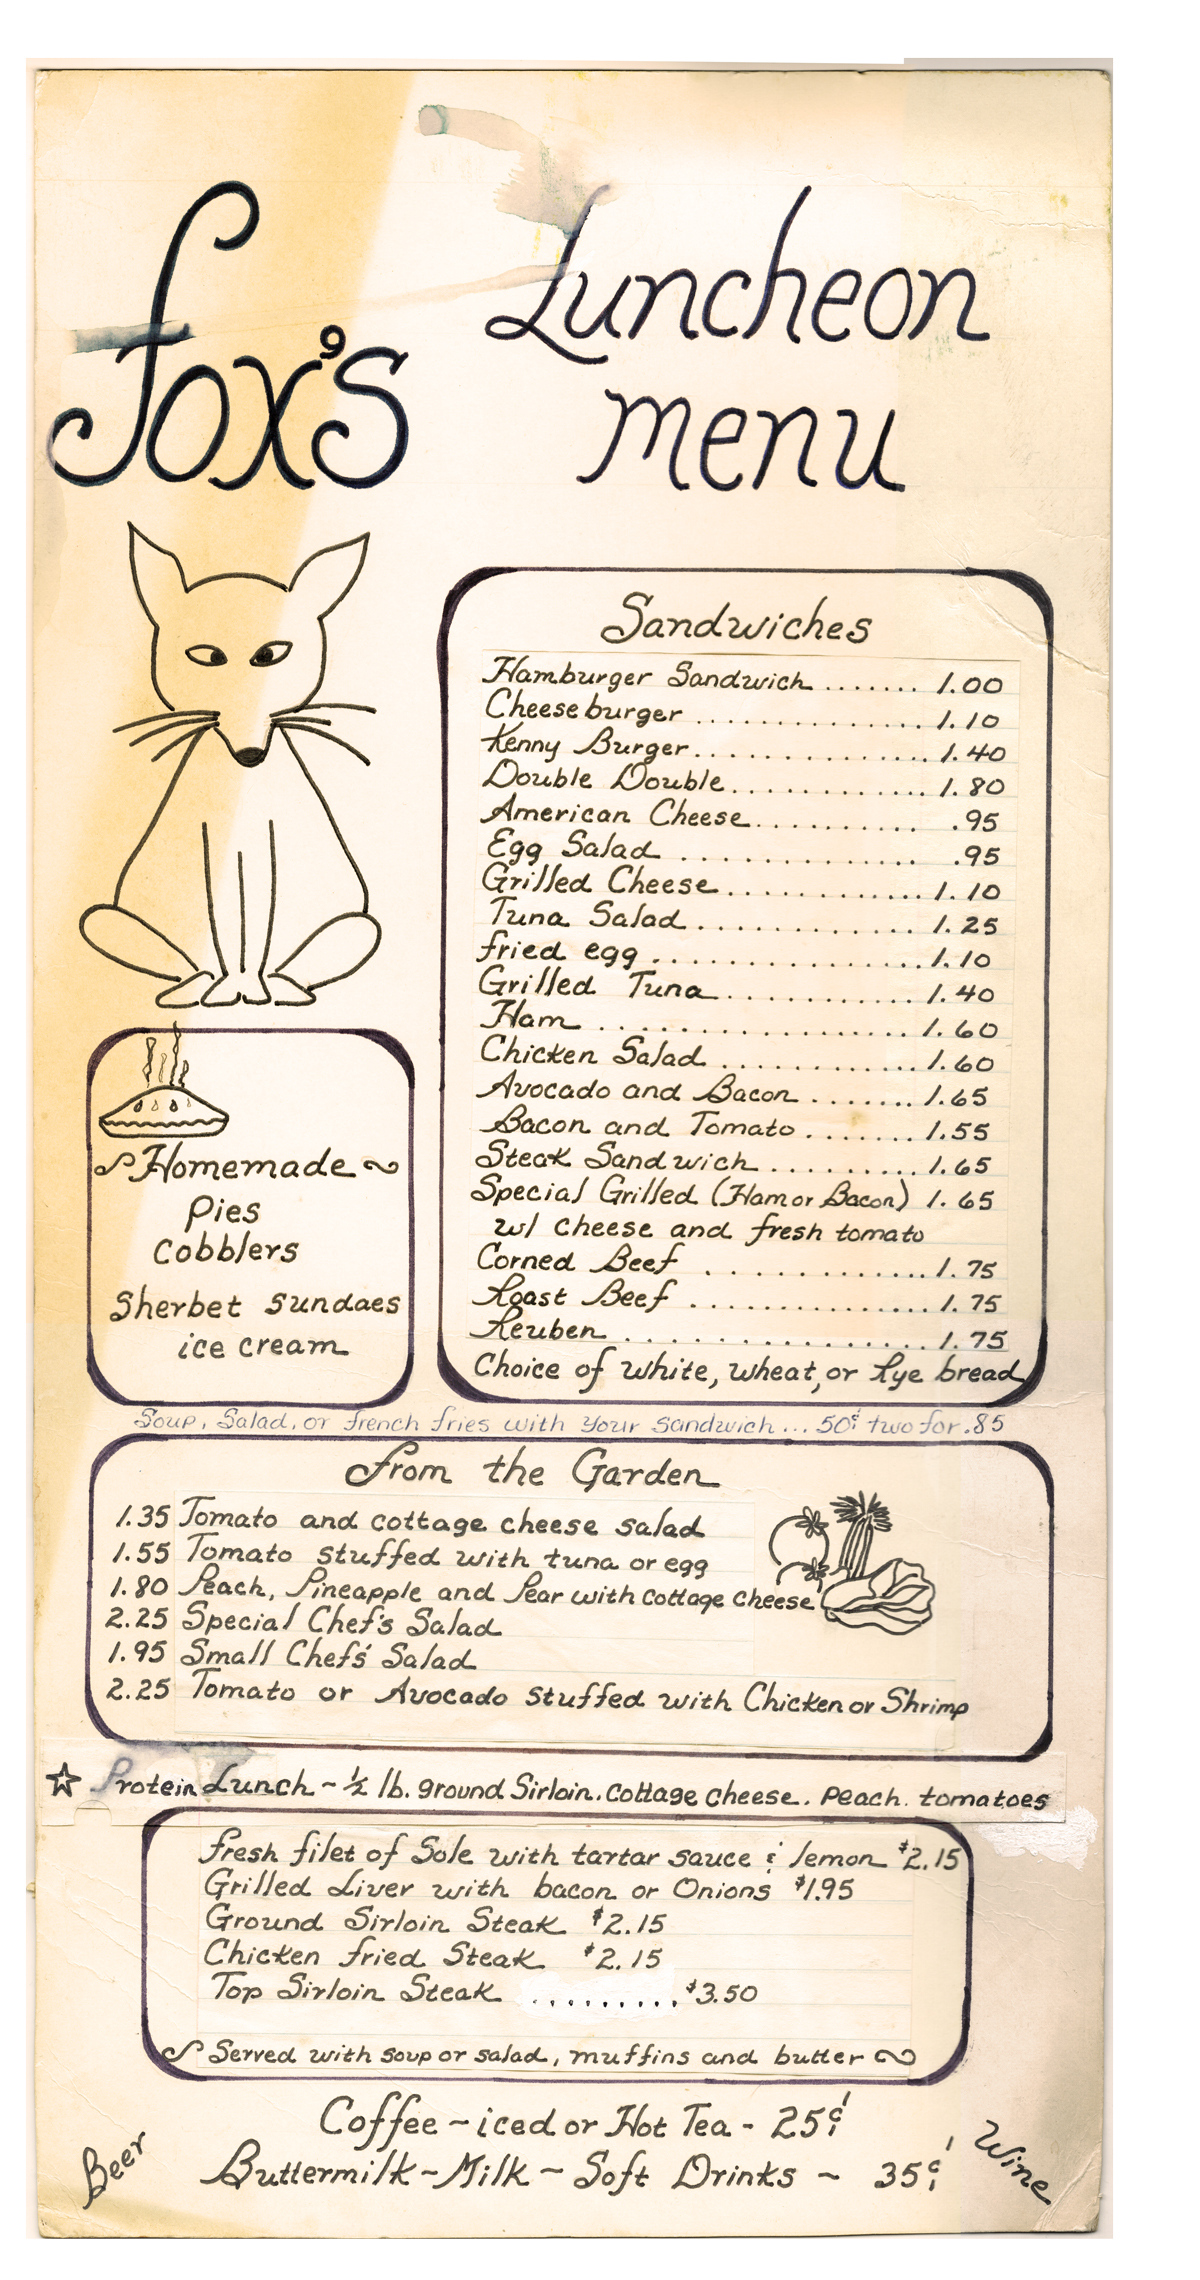 Fox's
Luncheon
menu
Sandwiches
Hamburger Sandwich ....... 1.00
Cheeseburger ............... 1.10
Kenny Burger ............... 1.40
Double Double ............. 1.80
American Cheese ........... .95
Egg Salad .............. .95
Grilled Cheese ............. 1.10
Tuna Salad .............. 1.25
fried egg ................ 1.10
Grilled Tuna ............. 1.40
Ham .................. 1.60
Chicken Salad ............ 1.60
Avocado and Bacon ....... 1.65
Bacon and Tomato ........ 1.55
Steak Sandwich .......... 1.65
Special Grilled (Ham or Bacon) 1.65
w/ cheese and fresh tomato
Corned Beef .............. 1.75
Roast Beef .............. 1.75
Reuben .................. 1.75
Choice of White, Wheat, or Rye bread
Homemade
Pies
Cobblers
Sherbet Sundaes
ice cream
Soup, Salad, or french fries with your sandwich ... 50¢ two for .85
From the Garden
1.35 Tomato and cottage cheese salad
1.55 Tomato stuffed with tuna or egg
1.80 Peach, Pineapple and Pear with cottage cheese
2.25 Special Chef's Salad
1.95 Small Chef's Salad
2.25 Tomato or Avocado stuffed with Chicken or Shrimp
☆ Protein Lunch ~ ½ lb. ground Sirloin. cottage cheese. peach. tomatoes
fresh filet of Sole with tartar sauce & lemon $2.15
Grilled Liver with bacon or Onions $1.95
Ground Sirloin Steak $2.15
Chicken fried Steak $2.15
Top Sirloin Steak .......... $3.50
Served with soup or salad, muffins and butter
Coffee ~ iced or Hot Tea - 25¢
Buttermilk ~ Milk ~ Soft Drinks ~ 35¢
Beer
Wine